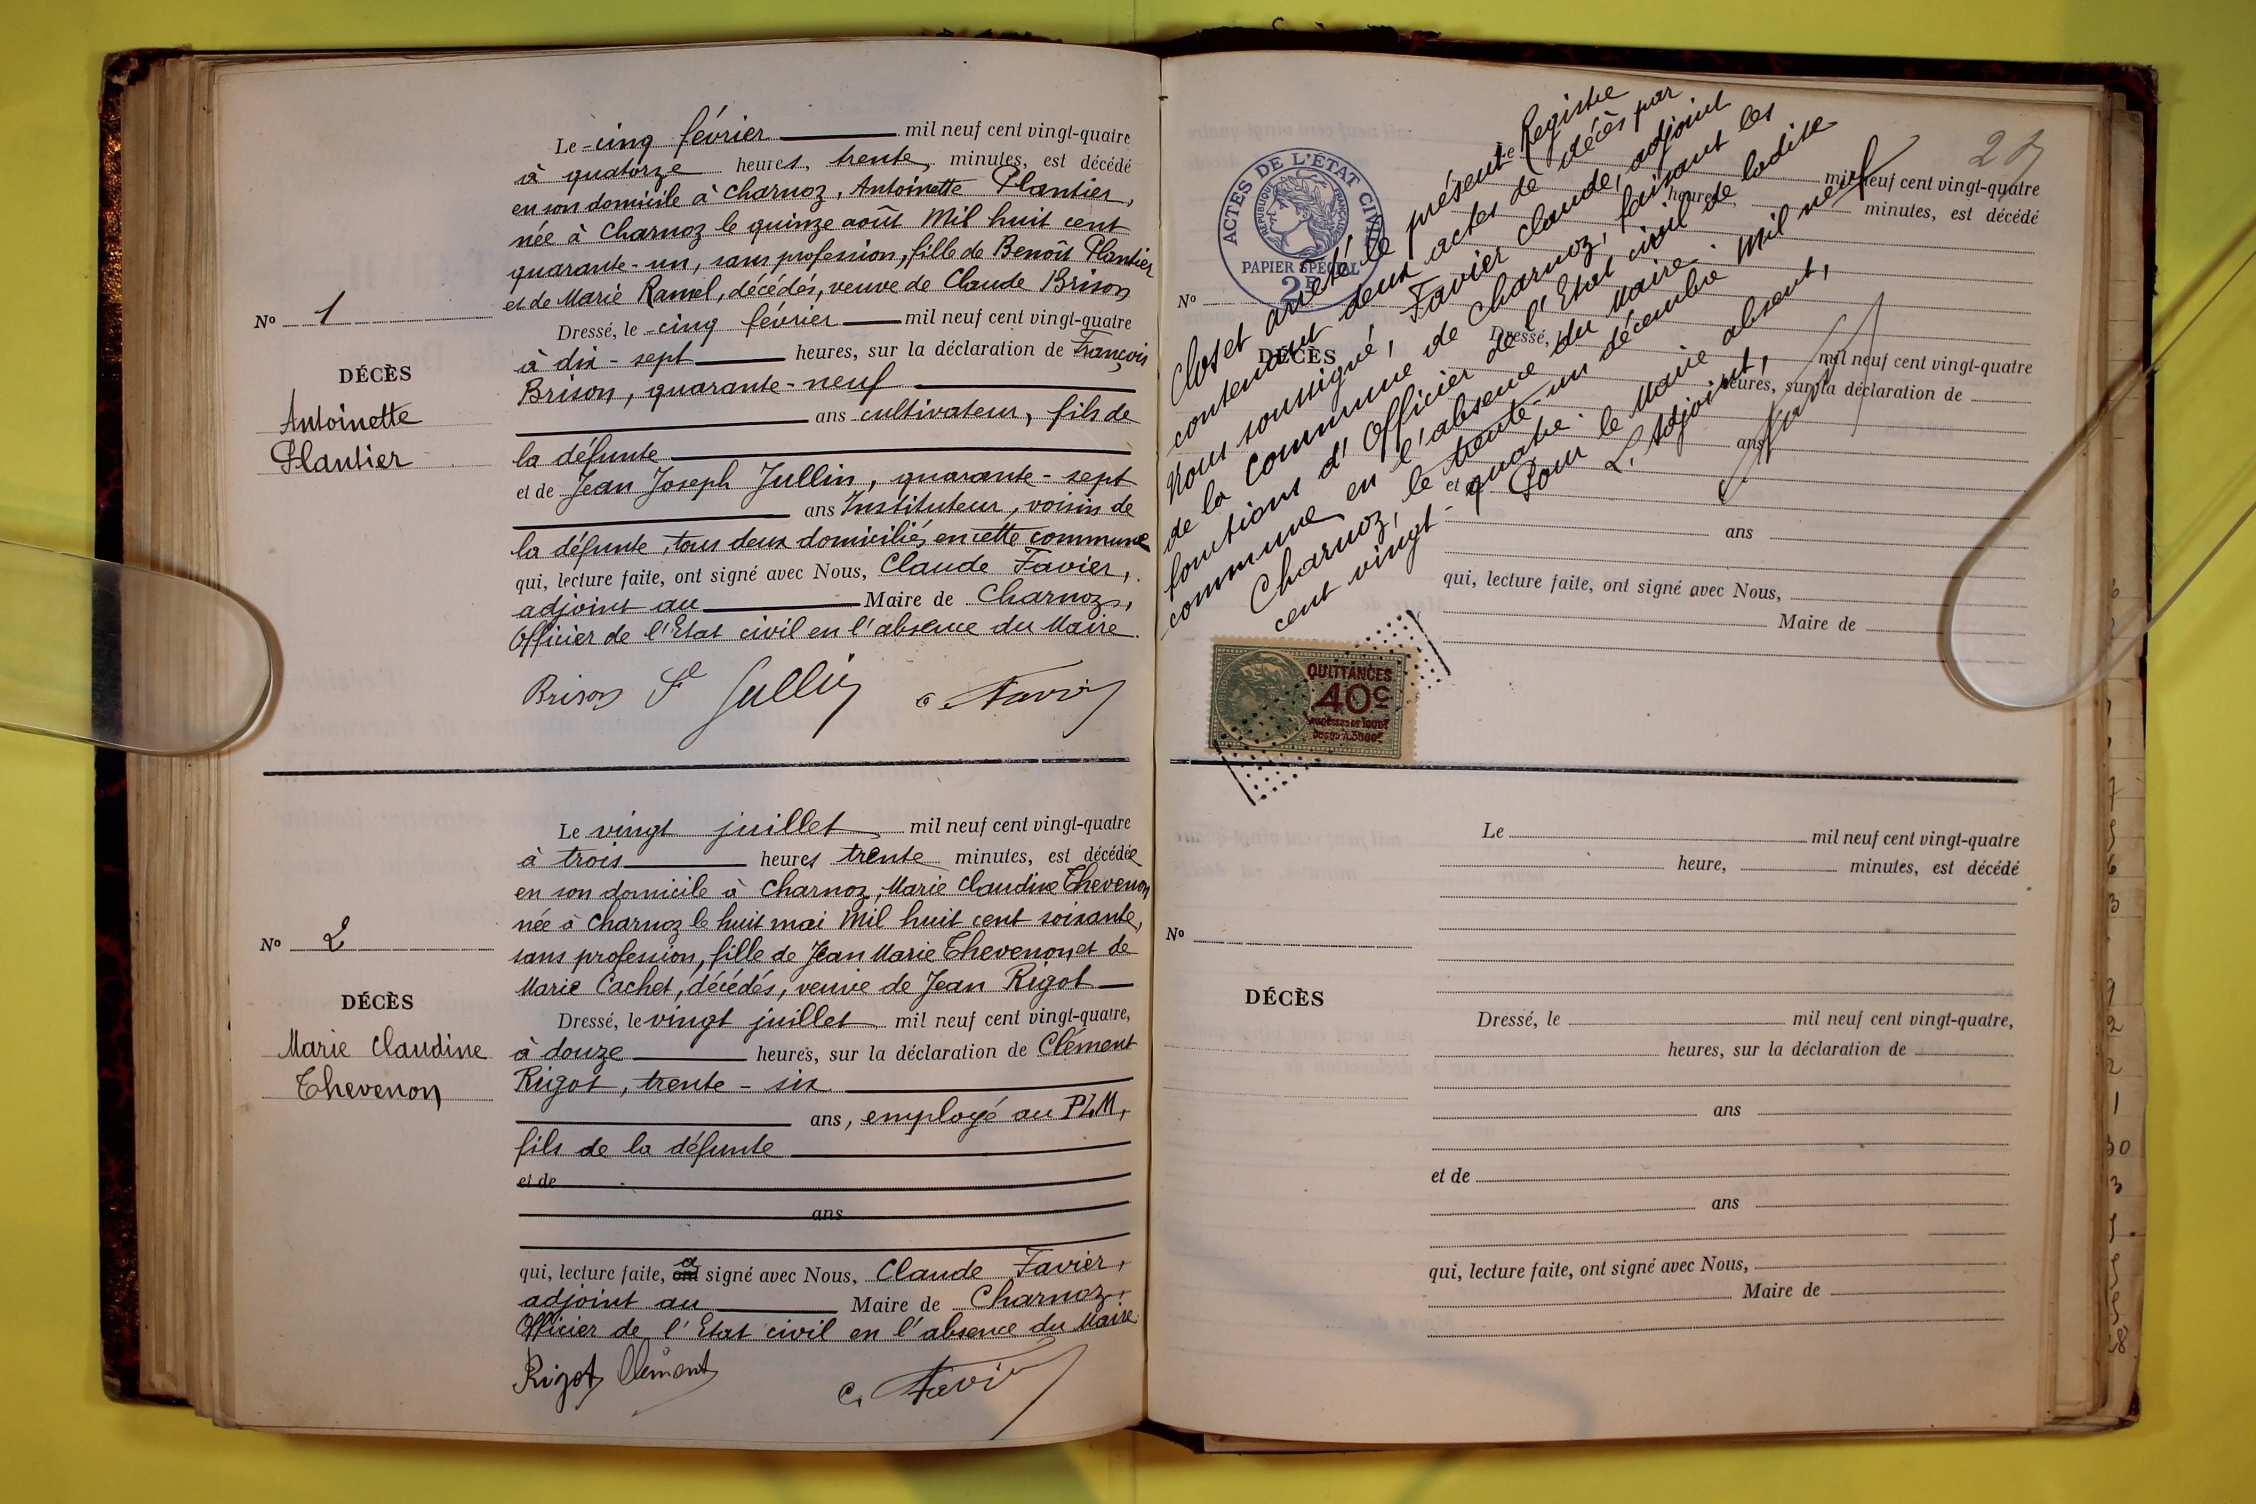 Le cinq février mil neuf cent vingt-quatre
à quatorze heures, trente minutes, est décédé
en son domicile à Charnoz, Antoinette Plantier,
née à Charnoz le quinze août Mil huit cent
quarante-un, sans profession, fille de Benoît Plantier
et de Marie Ramel, décédés, veuve de Claude Brison
No 1
Dressé, le cinq février mil neuf cent vingt-quatre
à dix-sept heures, sur la déclaration de François
DÉCÈS
Brison, quarante-neuf
Antoinette
ans cultivateur, fils de
Plantier
la défunte
et de Jean Joseph Jullin, quarante-sept
ans Instituteur, voisin de
la défunte, tous deux domiciliés en cette commune
qui, lecture faite, ont signé avec Nous, Claude Favier,
adjoint au Maire de Charnoz,
Officier de l'Etat civil en l'absence du Maire.
Brison Jullin C. Favier
Le vingt juillet mil neuf cent vingt-quatre
à trois heures trente minutes, est décédée
en son domicile à Charnoz, Marie Claudine Thevenon
née à Charnoz le huit mai Mil huit cent soixante,
No 2
sans profession, fille de Jean Marie Thevenon et de
Marie Cachet, décédés, veuve de Jean Rigot
DÉCÈS
Dressé, le vingt juillet mil neuf cent vingt-quatre,
Marie Claudine
à douze heures, sur la déclaration de Clément
Thevenon
Rigot, trente-six
ans, employé au PLM,
fils de la défunte
et de
ans
qui, lecture faite, ont a signé avec Nous, Claude Favier,
adjoint au Maire de Charnoz,
Officier de l'Etat civil en l'absence du Maire.
Rigot Clément C. Favier
Clos et arrêté le présent Registre
contenant deux actes de décès par
Nous soussigné, Favier Claude, adjoint
de la commune de Charnoz, faisant les
fonctions d'Officier de l'Etat civil de ladite
commune en l'absence du Maire.
Charnoz, le trente-un décembre Mil neuf
cent vingt-quatre.
Pour le Maire absent,
L'Adjoint,
ACTES DE L'ÉTAT CIVIL
RÉPUBLIQUE FRANÇAISE
PAPIER SPÉCIAL
2F
mil neuf cent vingt-quatre
heures, minutes, est décédé
No
DÉCÈS
Dressé, mil neuf cent vingt-quatre
heures, sur la déclaration de
ans
et de
ans
qui, lecture faite, ont signé avec Nous,
Maire de
QUITTANCES
40c
Le mil neuf cent vingt-quatre
heure, minutes, est décédé
No
DÉCÈS
Dressé, le mil neuf cent vingt-quatre,
heures, sur la déclaration de
ans
et de
ans
qui, lecture faite, ont signé avec Nous,
Maire de